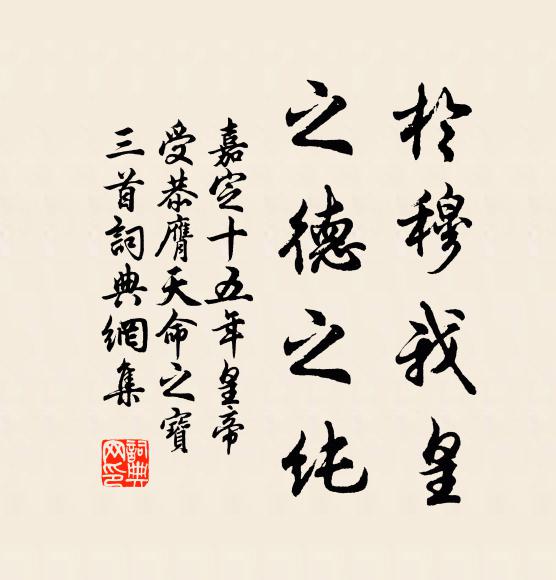 於穆我皇
之德之纯
嘉定十五年皇帝
受恭膺天命之寶
三首詞典網集
詞典网印